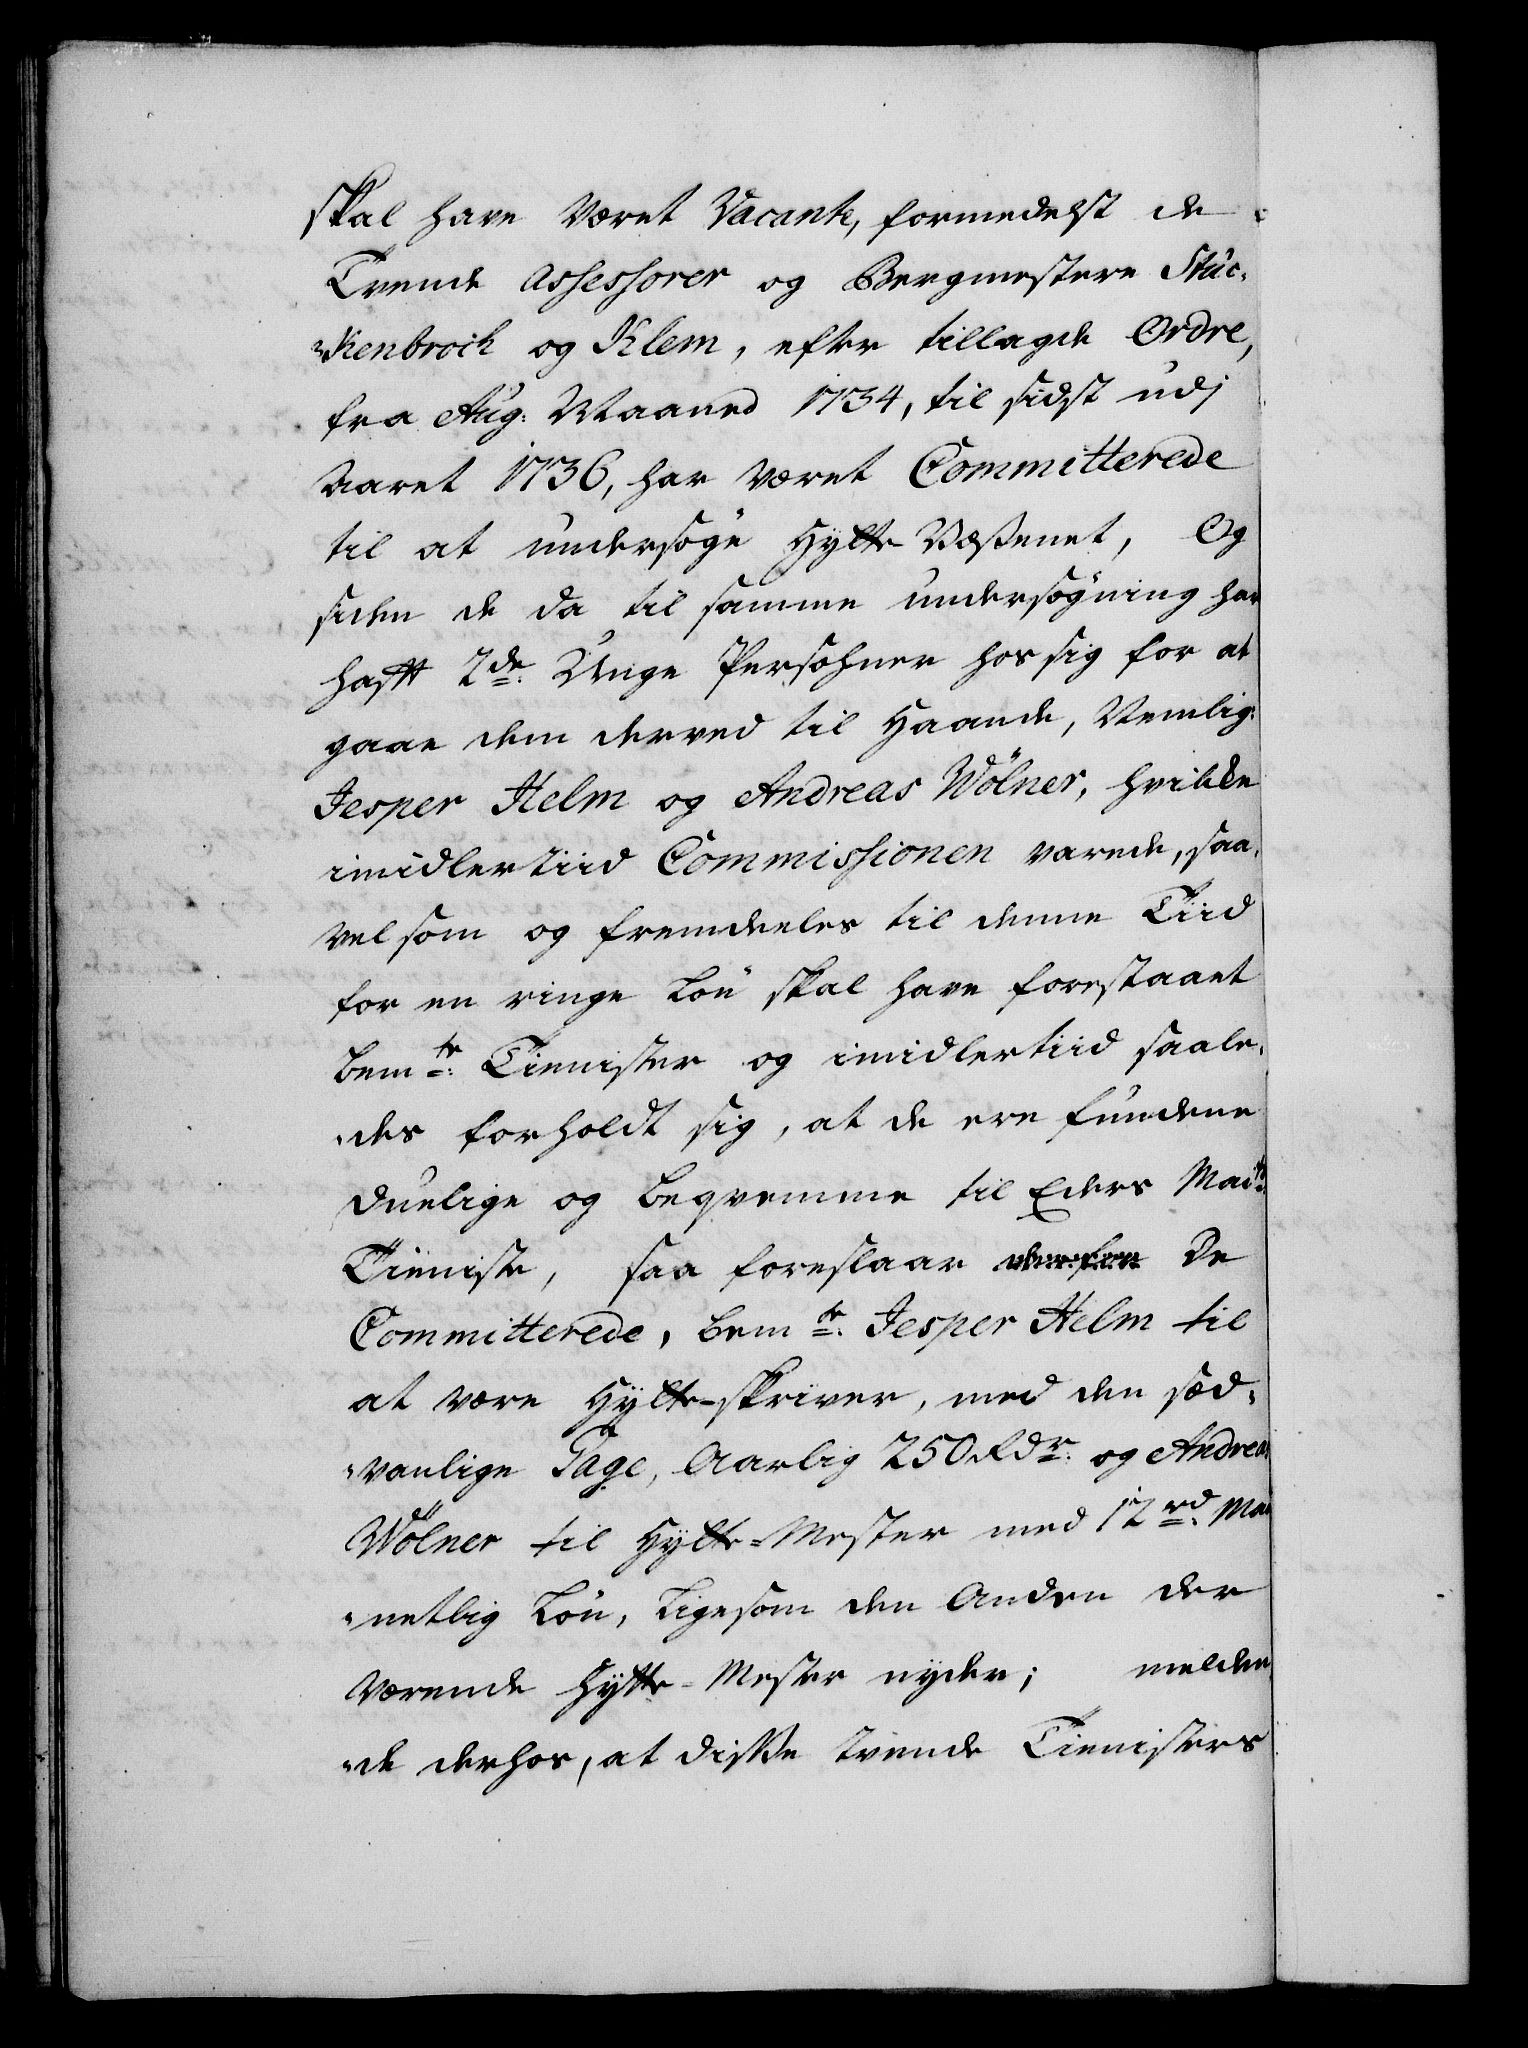 skal have været Vacante, formedelst de
Tvende Assessorer og Bergmestere Stüc-
kenbrock og Klem, efter tillagde Ordre,
fra Aug: Maaned 1734, til sidst udj
Aaret 1736, har været Committerede
til at undersøge Hytte-Væsenet, Og
siden de da til samme undersøgning har
hafft 2de Unge Persohner hos sig for at
gaae dem derved til Haande, Nemlig:
Jesper Helm og Andreas Wölner, hvilke
imidlertiid Commissionen varede, saa-
vel som og fremdeeles til denne Tiid
for en ringe Løn skal have forestaaet
bemte: Tienister og imidlertiid saale-
des forholdt sig, at de ere fundene
duelige og beqvemme til Eders Maits:
Tieniste, saa foreslaar De
Committerede, bemte: Jesper Helm til
at være Hytte-skriver, med den sæd-
vanlige Gage, Aarlig 250 Rdr: og Andreas
Wölner til Hytte-Mester med 12 rd: Maa
netlig Løn, ligesom den Anden der
værende Hytte-Mester nyder; melden
de derhos, at disse tvende Tienisters